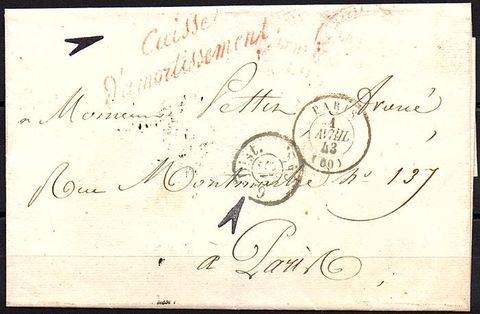 Caisse
D'amortissement
PARIS
1
AVRIL
43
(60)
Monsieur Avoué
Dist.
Rue Montmartre No. 137
a Paris